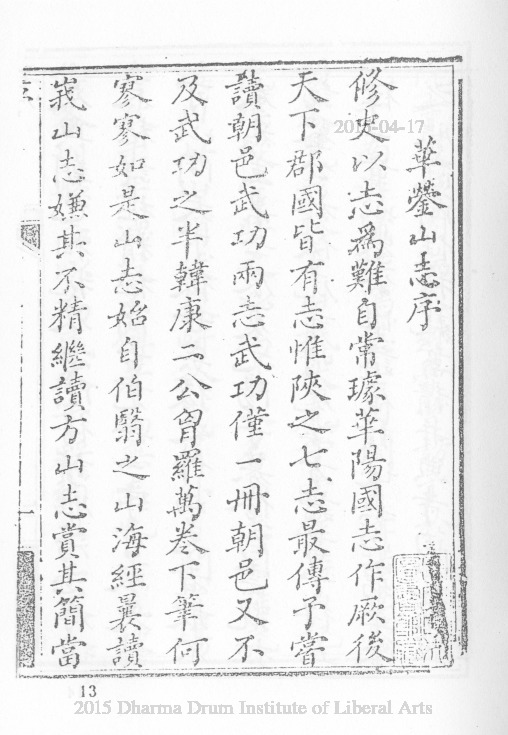 華蓥山志序
修史以志爲難自常璩華陽國志作厥後
天下郡國皆有志惟陝之七志最傳予嘗
讀朝邑武功兩志武功僅一冊朝邑又不
及武功之半韓康二公胷羅萬卷下筆何
寥寥如是山志始自伯翳之山海經曩讀
峩山志嫌其不精繼讀方山志賞其簡當
2015-04-17
13
2015 Dharma Drum Institute of Liberal Arts